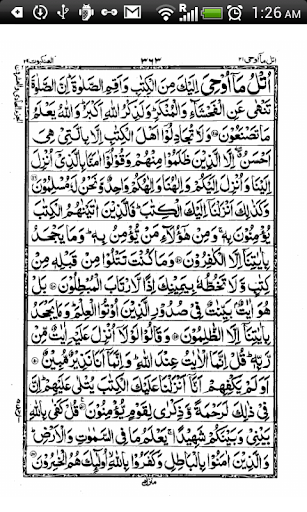 1:26 AM
العنكبوت ٢٩ ٣٦٣ اتل مآ اوحی ٢١
اُتْلُ مَاۤ اُوْحِیَ اِلَیْكَ مِنَ الْكِتٰبِ وَاَقِمِ الصَّلٰوةَ اِنَّ الصَّلٰوةَ
تَنْهٰی عَنِ الْفَحْشَآءِ وَالْمُنْكَرِ وَلَذِكْرُ اللّٰهِ اَكْبَرُ وَاللّٰهُ یَعْلَمُ
مَا تَصْنَعُوْنَ وَلَا تُجَادِلُوْۤا اَهْلَ الْكِتٰبِ اِلَّا بِالَّتِیْ هِیَ
اَحْسَنُ اِلَّا الَّذِیْنَ ظَلَمُوْا مِنْهُمْ وَقُوْلُوْۤا اٰمَنَّا بِالَّذِیْۤ اُنْزِلَ
اِلَیْنَا وَاُنْزِلَ اِلَیْكُمْ وَاِلٰهُنَا وَاِلٰهُكُمْ وَاحِدٌ وَّنَحْنُ لَهٗ مُسْلِمُوْنَ
وَكَذٰلِكَ اَنْزَلْنَاۤ اِلَیْكَ الْكِتٰبَ فَالَّذِیْنَ اٰتَیْنٰهُمُ الْكِتٰبَ
یُؤْمِنُوْنَ بِهٖ وَمِنْ هٰۤؤُلَآءِ مَنْ یُّؤْمِنُ بِهٖ وَمَا یَجْحَدُ
بِاٰیٰتِنَاۤ اِلَّا الْكٰفِرُوْنَ وَمَا كُنْتَ تَتْلُوْا مِنْ قَبْلِهٖ مِنْ
كِتٰبٍ وَّلَا تَخُطُّهٗ بِیَمِیْنِكَ اِذًا لَّارْتَابَ الْمُبْطِلُوْنَ بَلْ
هُوَ اٰیٰتٌۢ بَیِّنٰتٌ فِیْ صُدُوْرِ الَّذِیْنَ اُوْتُوا الْعِلْمَ وَمَا یَجْحَدُ
بِاٰیٰتِنَاۤ اِلَّا الظّٰلِمُوْنَ وَقَالُوْا لَوْلَاۤ اُنْزِلَ عَلَیْهِ اٰیٰتٌ مِّنْ
رَّبِّهٖ قُلْ اِنَّمَا الْاٰیٰتُ عِنْدَ اللّٰهِ وَاِنَّمَاۤ اَنَا نَذِیْرٌ مُّبِیْنٌ
اَوَلَمْ یَكْفِهِمْ اَنَّاۤ اَنْزَلْنَا عَلَیْكَ الْكِتٰبَ یُتْلٰی عَلَیْهِمْ اِنَّ
فِیْ ذٰلِكَ لَرَحْمَةً وَّذِكْرٰی لِقَوْمٍ یُّؤْمِنُوْنَ قُلْ كَفٰی بِاللّٰهِ
بَیْنِیْ وَبَیْنَكُمْ شَهِیْدًا یَعْلَمُ مَا فِی السَّمٰوٰتِ وَالْاَرْضِ
وَالَّذِیْنَ اٰمَنُوْا بِالْبَاطِلِ وَكَفَرُوْا بِاللّٰهِ اُولٰٓئِكَ هُمُ الْخٰسِرُوْنَ